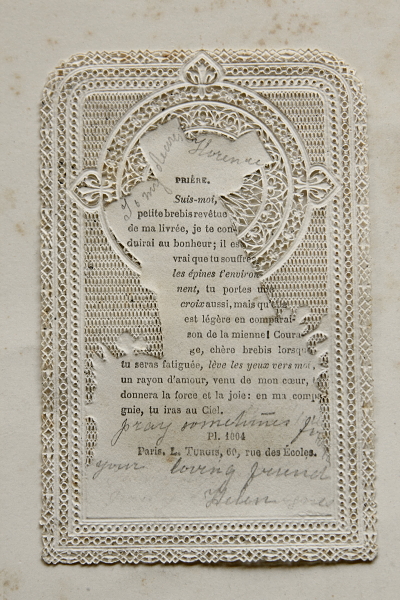 To my dear
Florence
PRIÈRE.
Suis-moi,
petite brebis revêtue
de ma livrée, je te con-
duirai au bonheur; il est
vrai que tu souffre
les épines t'environ-
nent, tu portes une
croix aussi, mais qu'elle
est légère en comparai-
son de la mienne! Coura-
ge, chère brebis lorsque
tu seras fatiguée, lève les yeux vers moi,
un rayon d'amour, venu de mon cœur, t
donnera la force et la joie: en ma compa
gnie, tu iras au Ciel.
pray sometimes for
Pl. 1004
Paris. L. TURGIS, 60, rue des Écoles.
your loving friend
Helen